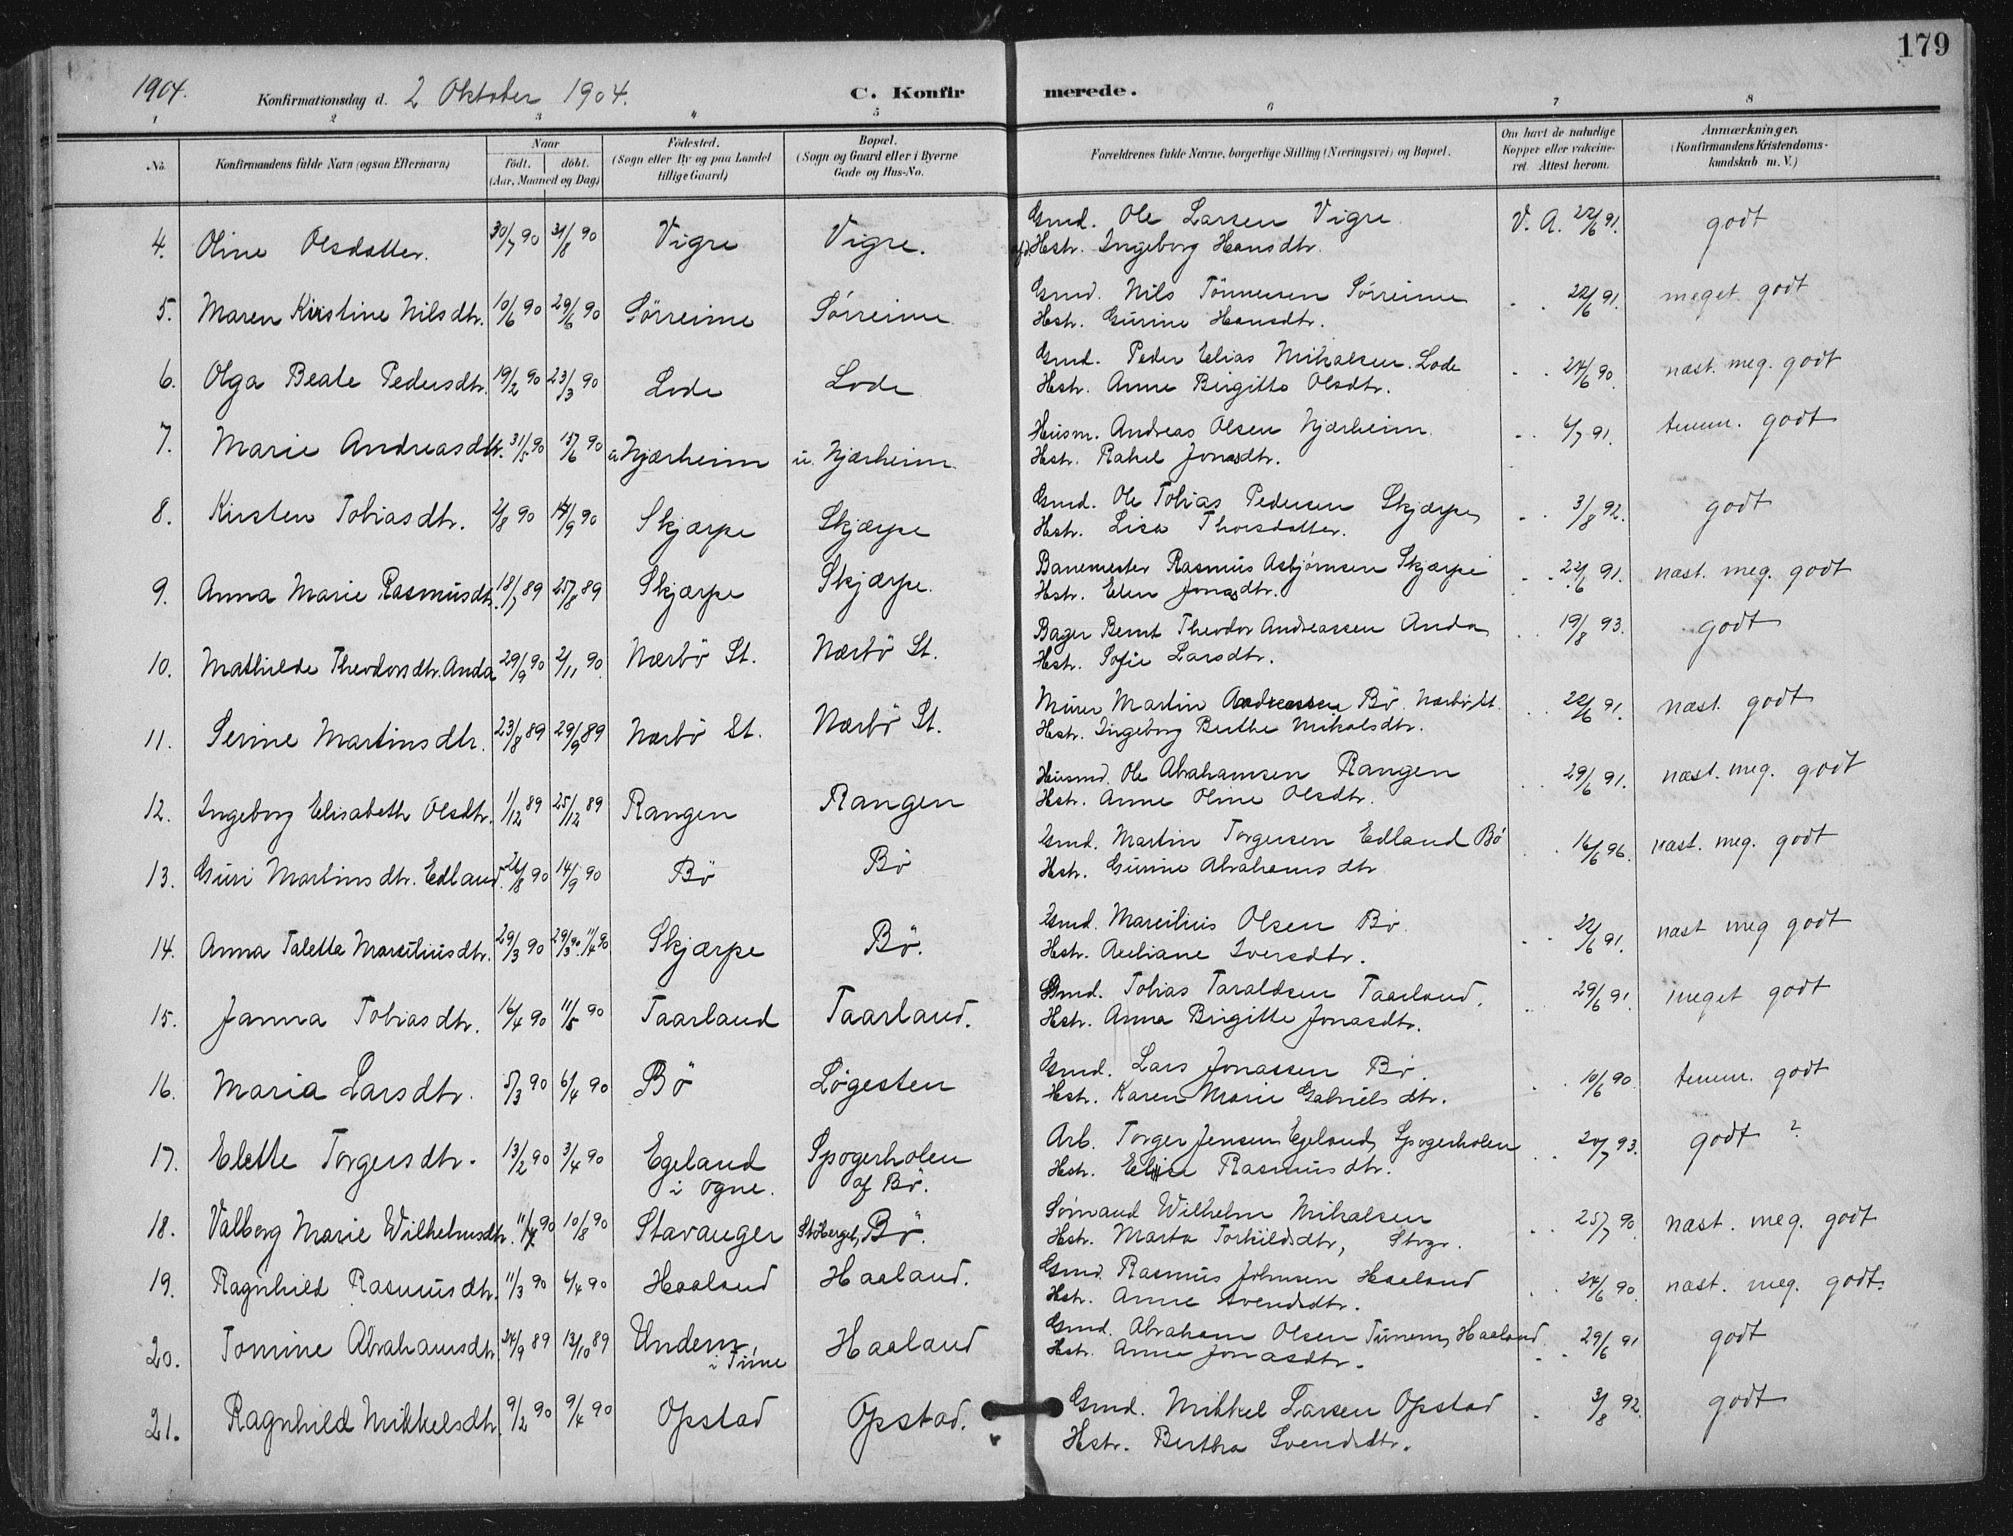 179
1904. Konfirmationsdag d. 2 Oktober 1904. C. Konfirmerede.
1 2 3 4 5 6 7 8
No. Konfirmandens fulde Navn (ogsaa Efternavn) Naar født. døbt. (Aar, Maaned og Dag) Fødested. (Sogn eller By og paa Landet tillige Gaard) Bopæl. (Sogn og Gaard eller i Byerne Gade og Hus-No. Forældrenes fulde Navne, borgerlige Stilling (Næringsvei) og Bopæl. Om havt de naturlige Kopper eller vakcineret. Attest herom. Anmærkninger, (Konfirmandens Kristendomskundskab m. V.)
4. Oline Olsdatter. 30/7 90 31/8 90 Vigre Vigre. Gmd. Ole Larsen Vigre V. A. 22/6 91. godt
Hstr. Ingeborg Hansdtr.
5. Maren Kristine Nilsdtr. 10/6 90 29/6 90 Sörreime Sörreime Gmd. Nils Tönnesen Sörreime . . 22/6 91. meget godt
Hstr. Gurine Hansdtr.
6. Olga Beate Pedersdtr. 19/2 90 23/3 90 Lode Lode Gmd. Peder Elias Mikalsen. Lode . . 24/6 90. næst. meg. godt
Hstr. Anne Birgitte Olsdtr.
7. Marie Andreasdtr. 31/5 90 15/6 90 u Njærheim u. Njærheim. Husm. Andreas Olsen Njærheim . . 6/7 91. temm. godt
Hstr. Rakel Jonasdtr.
8. Kirsten Tobiasdtr. 2/8 90 14/9 90 Skjærpe Skjærpe Gmd. Ole Tobias Pedersen Skjærpe . . 3/8 92. godt
Hstr. Lisa Thorsdatter.
9. Anna Marie Rasmusdtr. 18/7 89 25/8 89 Skjærpe Skjærpe. Banemester Rasmus Asbjørnsen Skjærpe . . 22/6 91. næst. meg. godt
Hstr. Elen Jonasdtr.
10. Mathilde Theodorsdtr. Anda 29/9 90 2/11 90. Nærbö St. Nærbö St. Bager Bernt Theodor Andreassen Anda . . 19/8 93. godt
Hstr. Sofie Larsdtr.
11. Serine Martinsdtr. 23/8 89 29/9 89 Nærbö St. Nærbö St. Murer Martin Andreassen Bö. Nærbö St. . . 22/6 91. næst. godt
Hstr. Ingeborg Berthe Mikalsdtr.
12. Ingeborg Elisabeth Olsdtr. 1/12 89 25/12 89 Rangen Rangen Husmd. Ole Abrahamsen Rangen . . 29/6 91. næst. meg. godt
Hstr. Anne Oline Olsdtr.
13. Guri Martinsdtr. Edland. 26/8 90 14/9 90 Bö Bö Gmd. Martin Torgersen Edland Bö . . 16/6 96. næst. meg. godt
Hstr. Gurine Abrahamsdtr
14. Anna Talette Marseliusdtr. 29/3 90 29/3 90. 11/4 90. Skjærpe Bö. Gmd. Marcilius Olsen Bö. . . 22/6 91. næst meg godt
Hstr. Aceliane Iversdtr.
15. Janna Tobiasdtr. 16/4 90 11/5 90 Taarland Taarland. Gmd. Tobias Taraldsen Taarland. . . 29/6 91. meget godt
Hstr. Anna Birgitte Jonasdtr.
16. Maria Larsdtr. 5/3 90 6/4 90 Bö Lögesten Gmd. Lars Jonassen Bö. . . 10/6 90. temm. godt
Hstr. Karen Marie Gabrielsdtr.
17. Elette Torgersdtr. 13/2 90 3/4 90 Egeland i Ogne. Spogerholen af Bö. Arb. Torger Jensen Egeland, Spogerholen . . 20/7 93. godt ?
Hstr. Elise Rasmusdtr.
18. Valborg Marie Wilhelmsdtr. 11/7 90 10/8 90 Stavanger Stöberget, Bö. Sömand Wilhelm Mikalsen . . 25/7 90. næst. meg. godt
Hstr. Marta Torkildsdtr, Stvgr.
19. Ragnhild Rasmusdtr. 11/3 90 6/4 90 Haaland Haaland. Gmd. Rasmus Johnsen Haaland . . 24/6 90. næst. meg. godt.
Hstr. Anne Svendsdtr.
20. Tomine Abrahamsdtr. 24/9 89 13/10 89 Undem i Time Haaland Gmd. Abraham Olsen Tunem, Haaland . . 29/6 91 godt
Hstr. Anne Jonasdtr.
21. Ragnhild Mikkelsdtr. 9/2 90 9/4 90 Opstad Opstad. Gmd. Mikkel Larsen Opstad . 3/8 92. godt
Hstr. Bertha Svendsdtr.